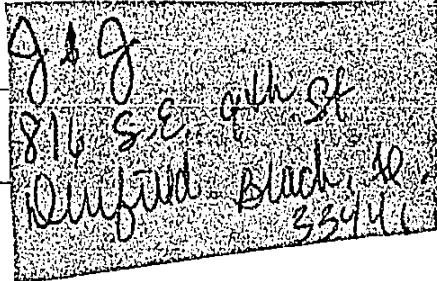 J & J
816 S.E. 9th St
Deerfield Beach, Fl.
33441